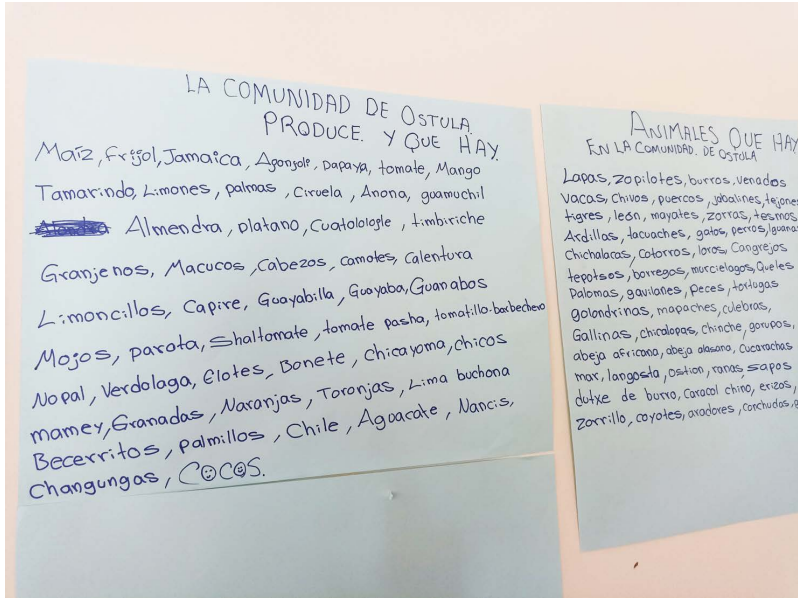 LA COMUNIDAD DE OSTULA
PRODUCE. Y QUE HAY.
Maíz, Frijol, Jamaica, Agonjolí, papaya, tomate, Mango
Tamarindo, Limones, palmas, Ciruela, Anona, guamuchil
Almendra, platano, Cuatololote, timbiriche
Granjenos, Macucos, Cabezos, camotes, calentura
Limoncillos, Capire, Guayabilla, Guayaba, Guanabos
Mojos, parota, Shaltomate, tomate pasha, tomatillo-barbechero
Nopal, Verdolaga, Elotes, Bonete, Chicayoma, chicos
mamey, Granadas, Naranjas, Toronjas, Lima buchona
Becerritos, palmillos, Chile, Aguacate, Nancis,
Changungas, COCOS.
ANIMALES QUE HAY
EN LA COMUNIDAD. DE OSTULA
Lapas, zopilotes, burros, venados
Vacas, Chivos, puercos, jabalines, tejones
tigres, león, mayates, zorras, tesmos
Ardillas, tacuaches, gatos, perros, Iguanas
Chichalacas, Cotorros, loros, Cangrejos
tepotsos, borregos, murcielagos, Queles
Palomas, gavilanes, peces, tortugas
golondrinas, mapaches, culebras,
Gallinas, chicalopas, chinche, gorupos,
abeja africana, abeja alasana, Cucarachas
mar, langosta, Ostion, ranas, sapos
dutxe de burro, Caracol chino, erizos,
zorrillo, coyotes, aradores, Conchudas,